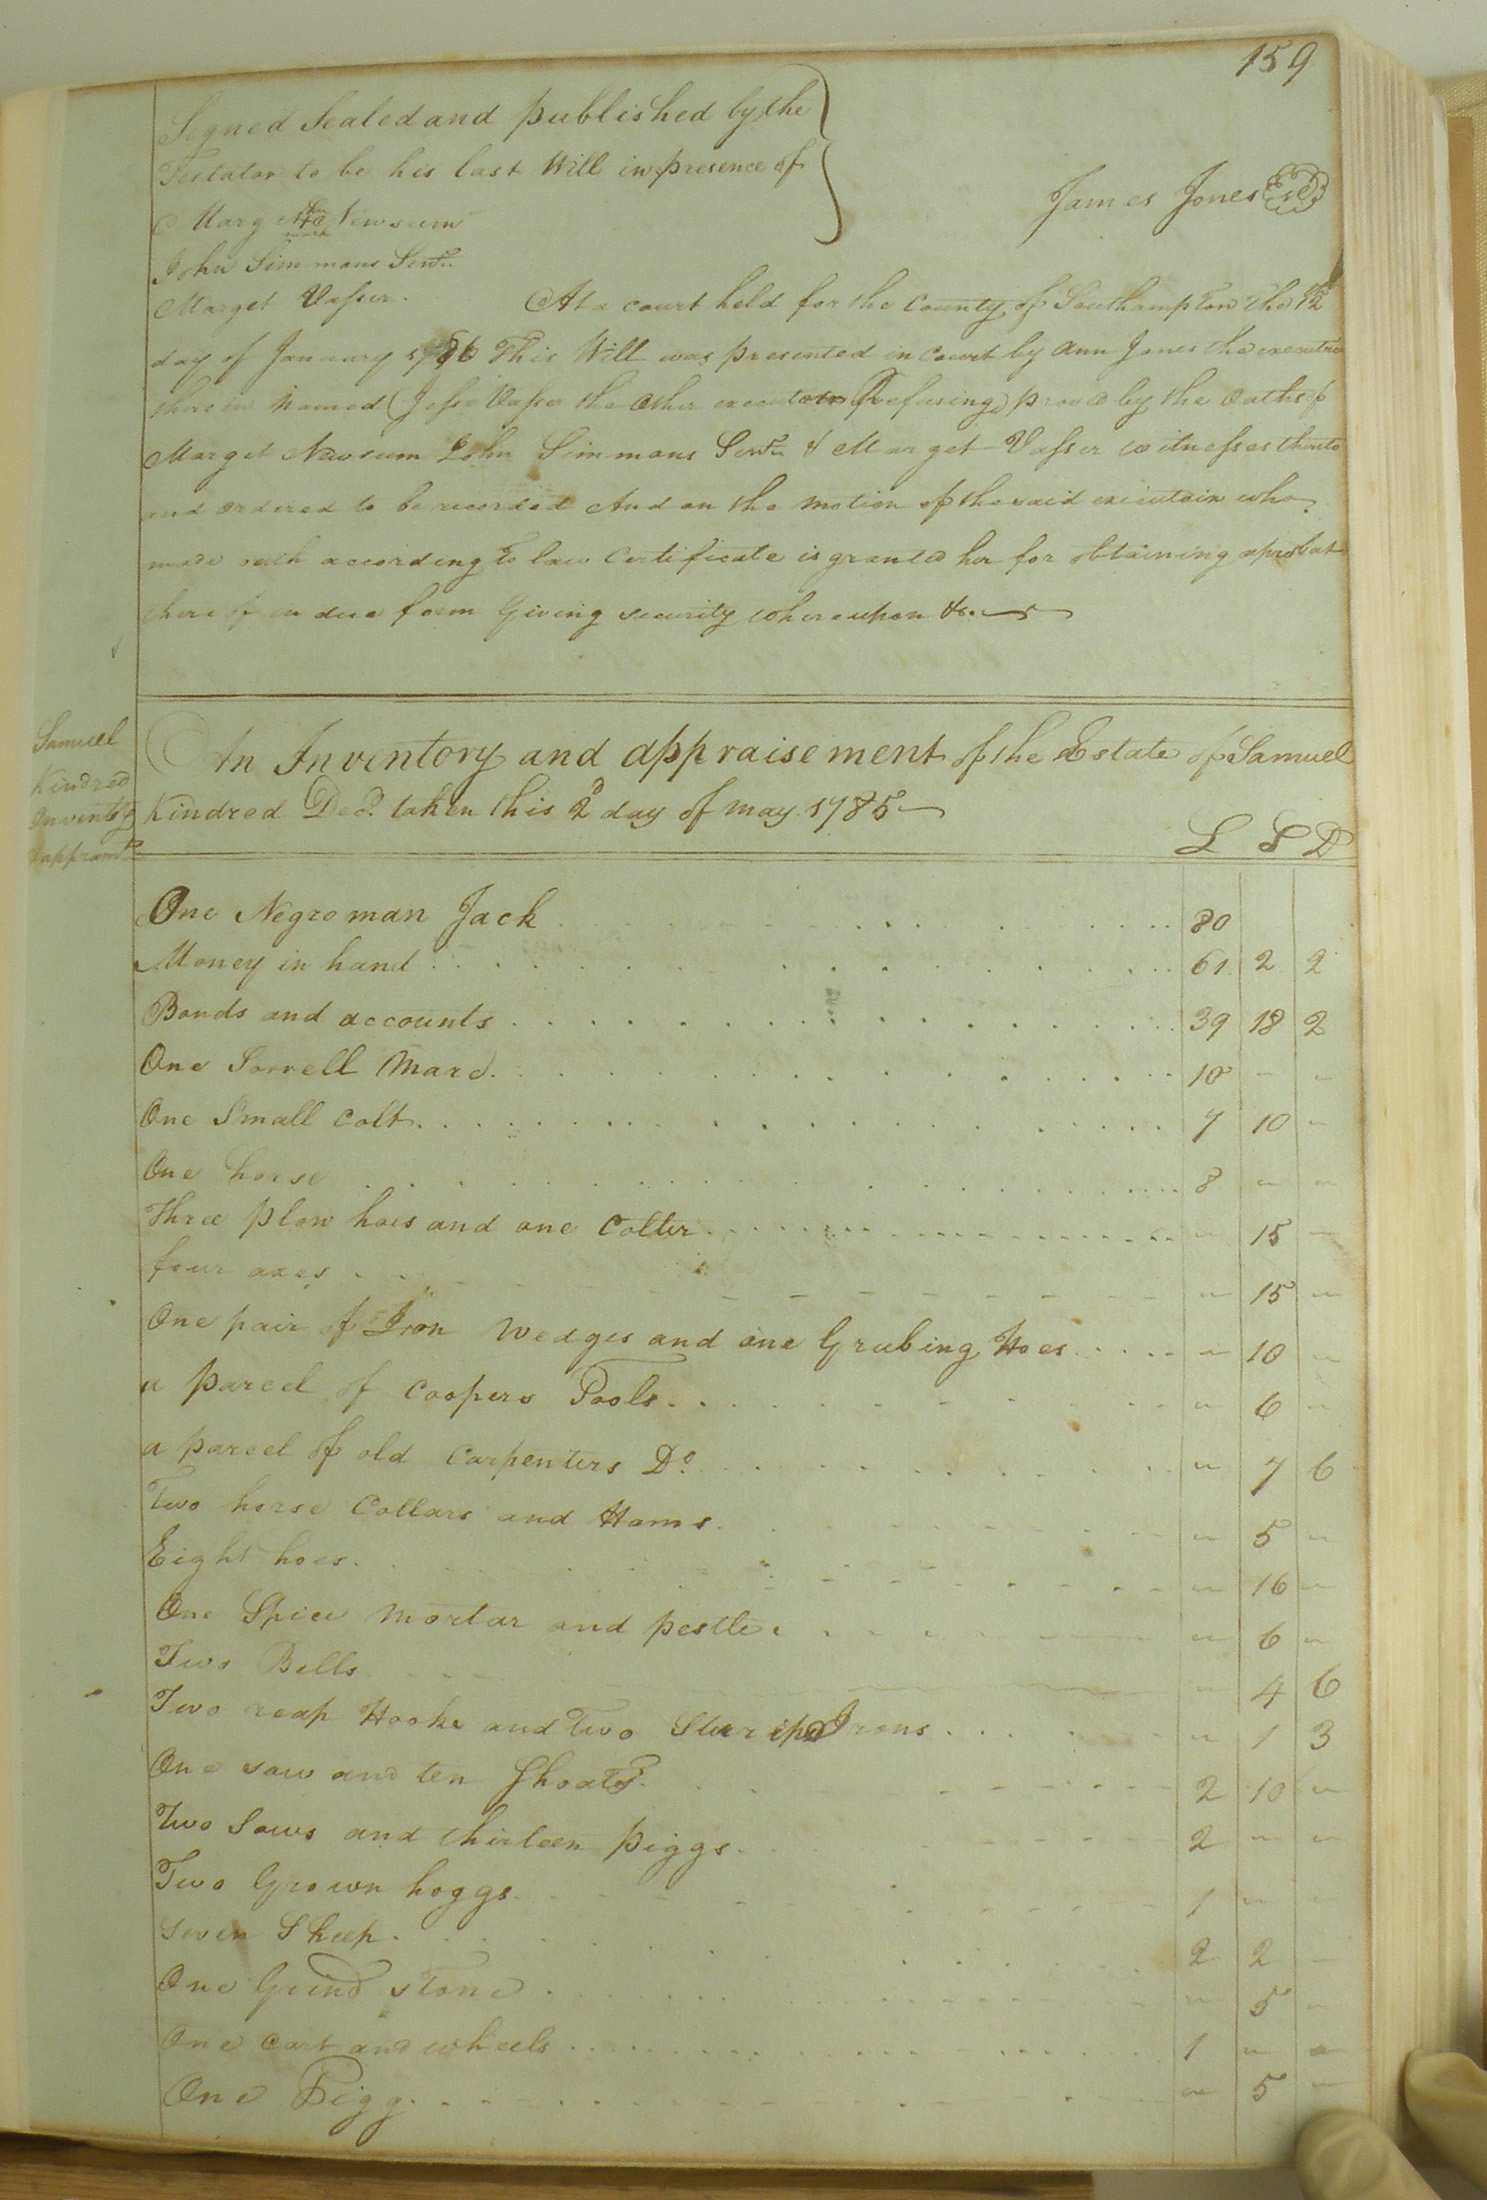 159
Signed Sealed and published by the
Testator to be his last Will in presence of
James Jones
Marg Newsum
mark
John Simmons Senr.
Marget Vasser. At a court held for the County of Southampton the 12
day of January 1786 This Will was presented in Court by Ann Jones the executrix
therein Named (Jesse Vasser the Other executor Refusing) proved by the Oaths of
Marget Newsum John Simmons Senr. & Marget Vasser witnesses thereto
and ordered to be recorded And on the Motion of the said executrix who
made oath according to law Certificate is granted her for obtaining a probat
thereof in due form Giving security whereupon &c.
Samuel
Kindred
Inventory
& appraimt.
An Inventory and appraisement of the Estate of Samuel
Kindred Decd. taken this 2d day of may 1785
L S D
One Negro man Jack 80
Money in hand 61 2 2
Bonds and accounts 39 18 2
One Sorrell Mare 10 - -
One Small Colt 7 10 -
One horse 8 - -
Three plow hoes and one Colter - 15 -
four axes - 15 -
One pair of Iron Wedges and one Grubing Hoes - 10 -
a parcel of Coopers Tools - 6 -
a parcel of old Carpenters Do. - 7 6
Two horse Collars and Hams - 5 -
Eight hoes - 16 -
One Spice Mortar and pestle - 6 -
Two Bells - 4 6
Two reap Hooks and Two Sturip Irons - 1 3
One sow and ten Shoats 2 10 -
Two Sows and thirteen piggs 2 - -
Two Grown hoggs 1 - -
Seven Sheep 2 2 -
One Grind stone - 5 -
One Cart and wheels 1 - -
One Pigg - 5 -